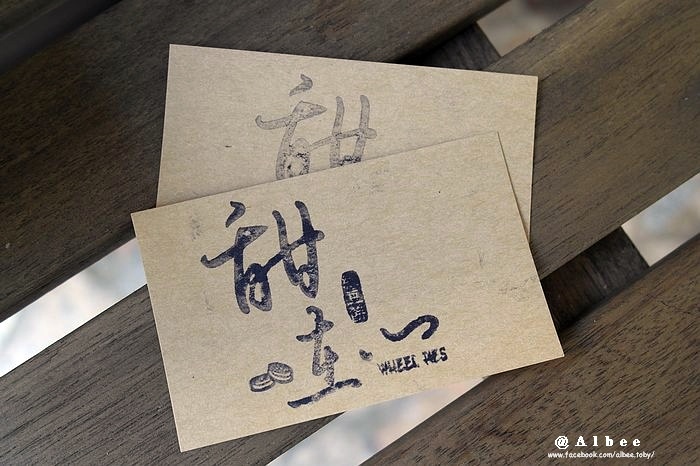 甜
甜
在心
WHEEL PIES
@Albee
www.facebook.com/albee.toby/